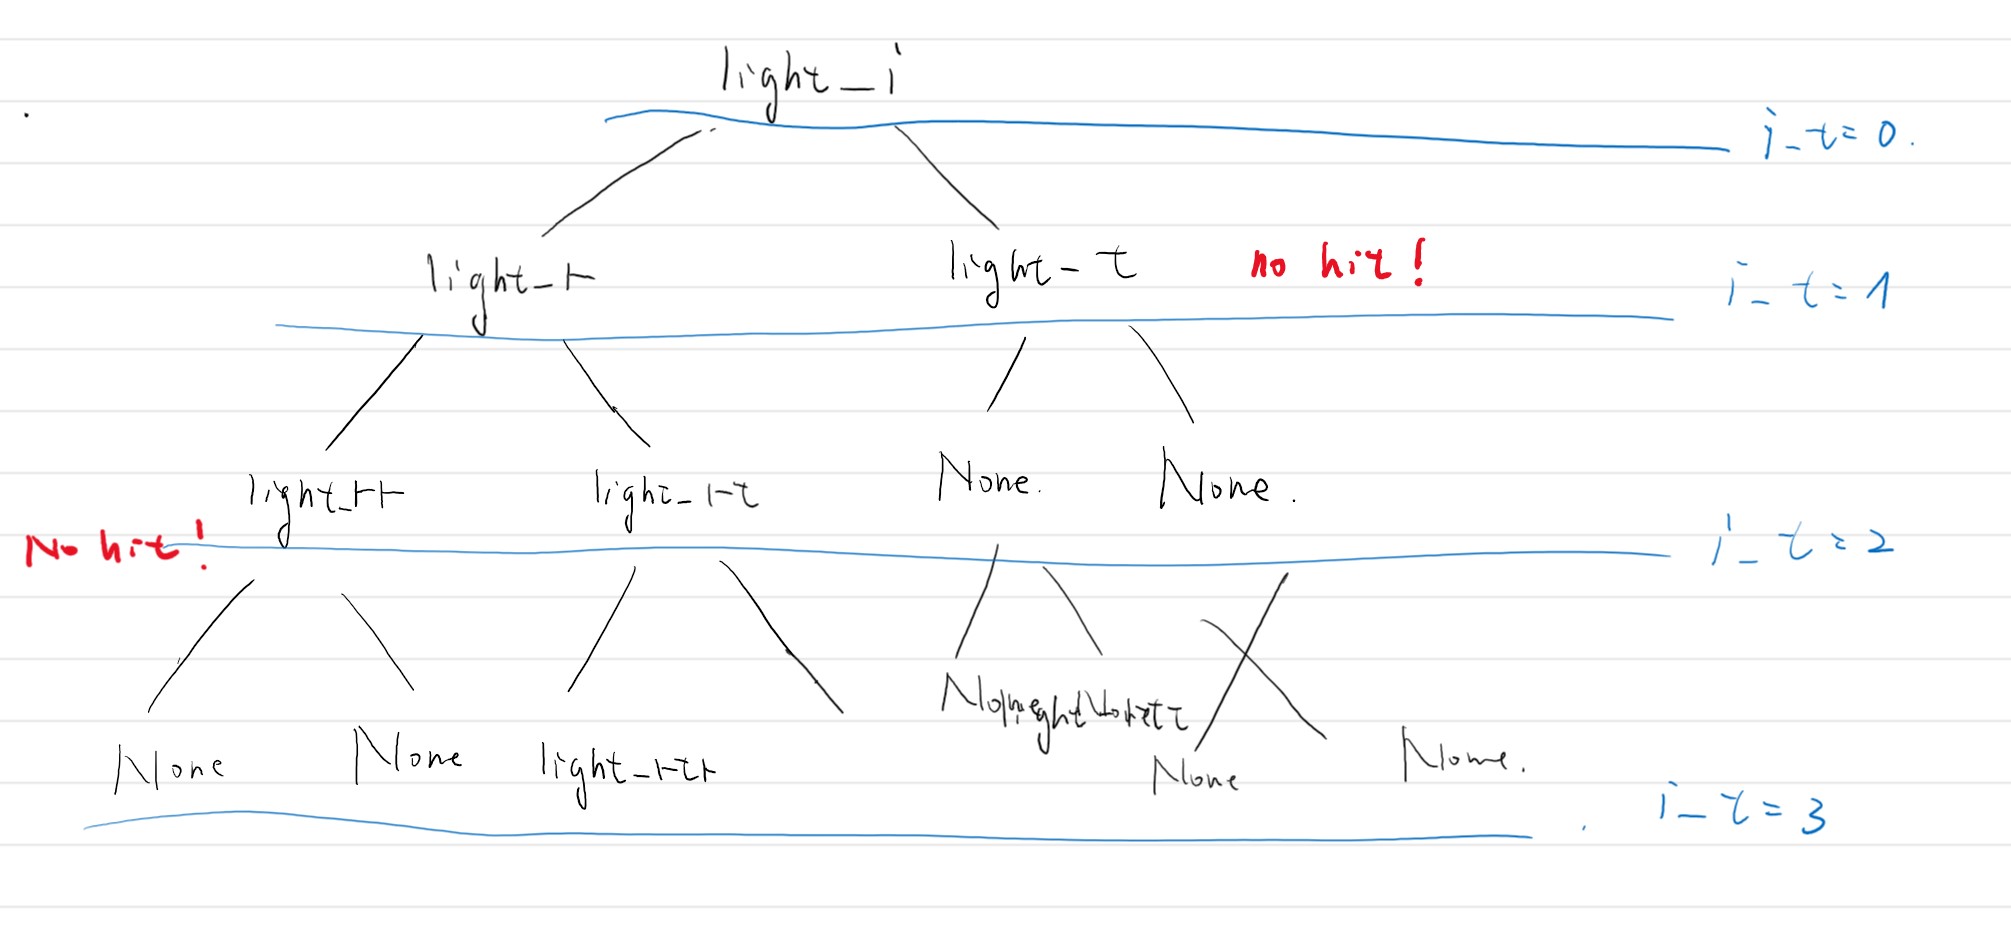 light_i
i_t=0.
light_r
light_t no hit!
i_t=1
light_rr light_rt None. None.
No hit!
i_t=2
None None light_rtr
None None.
i_t=3